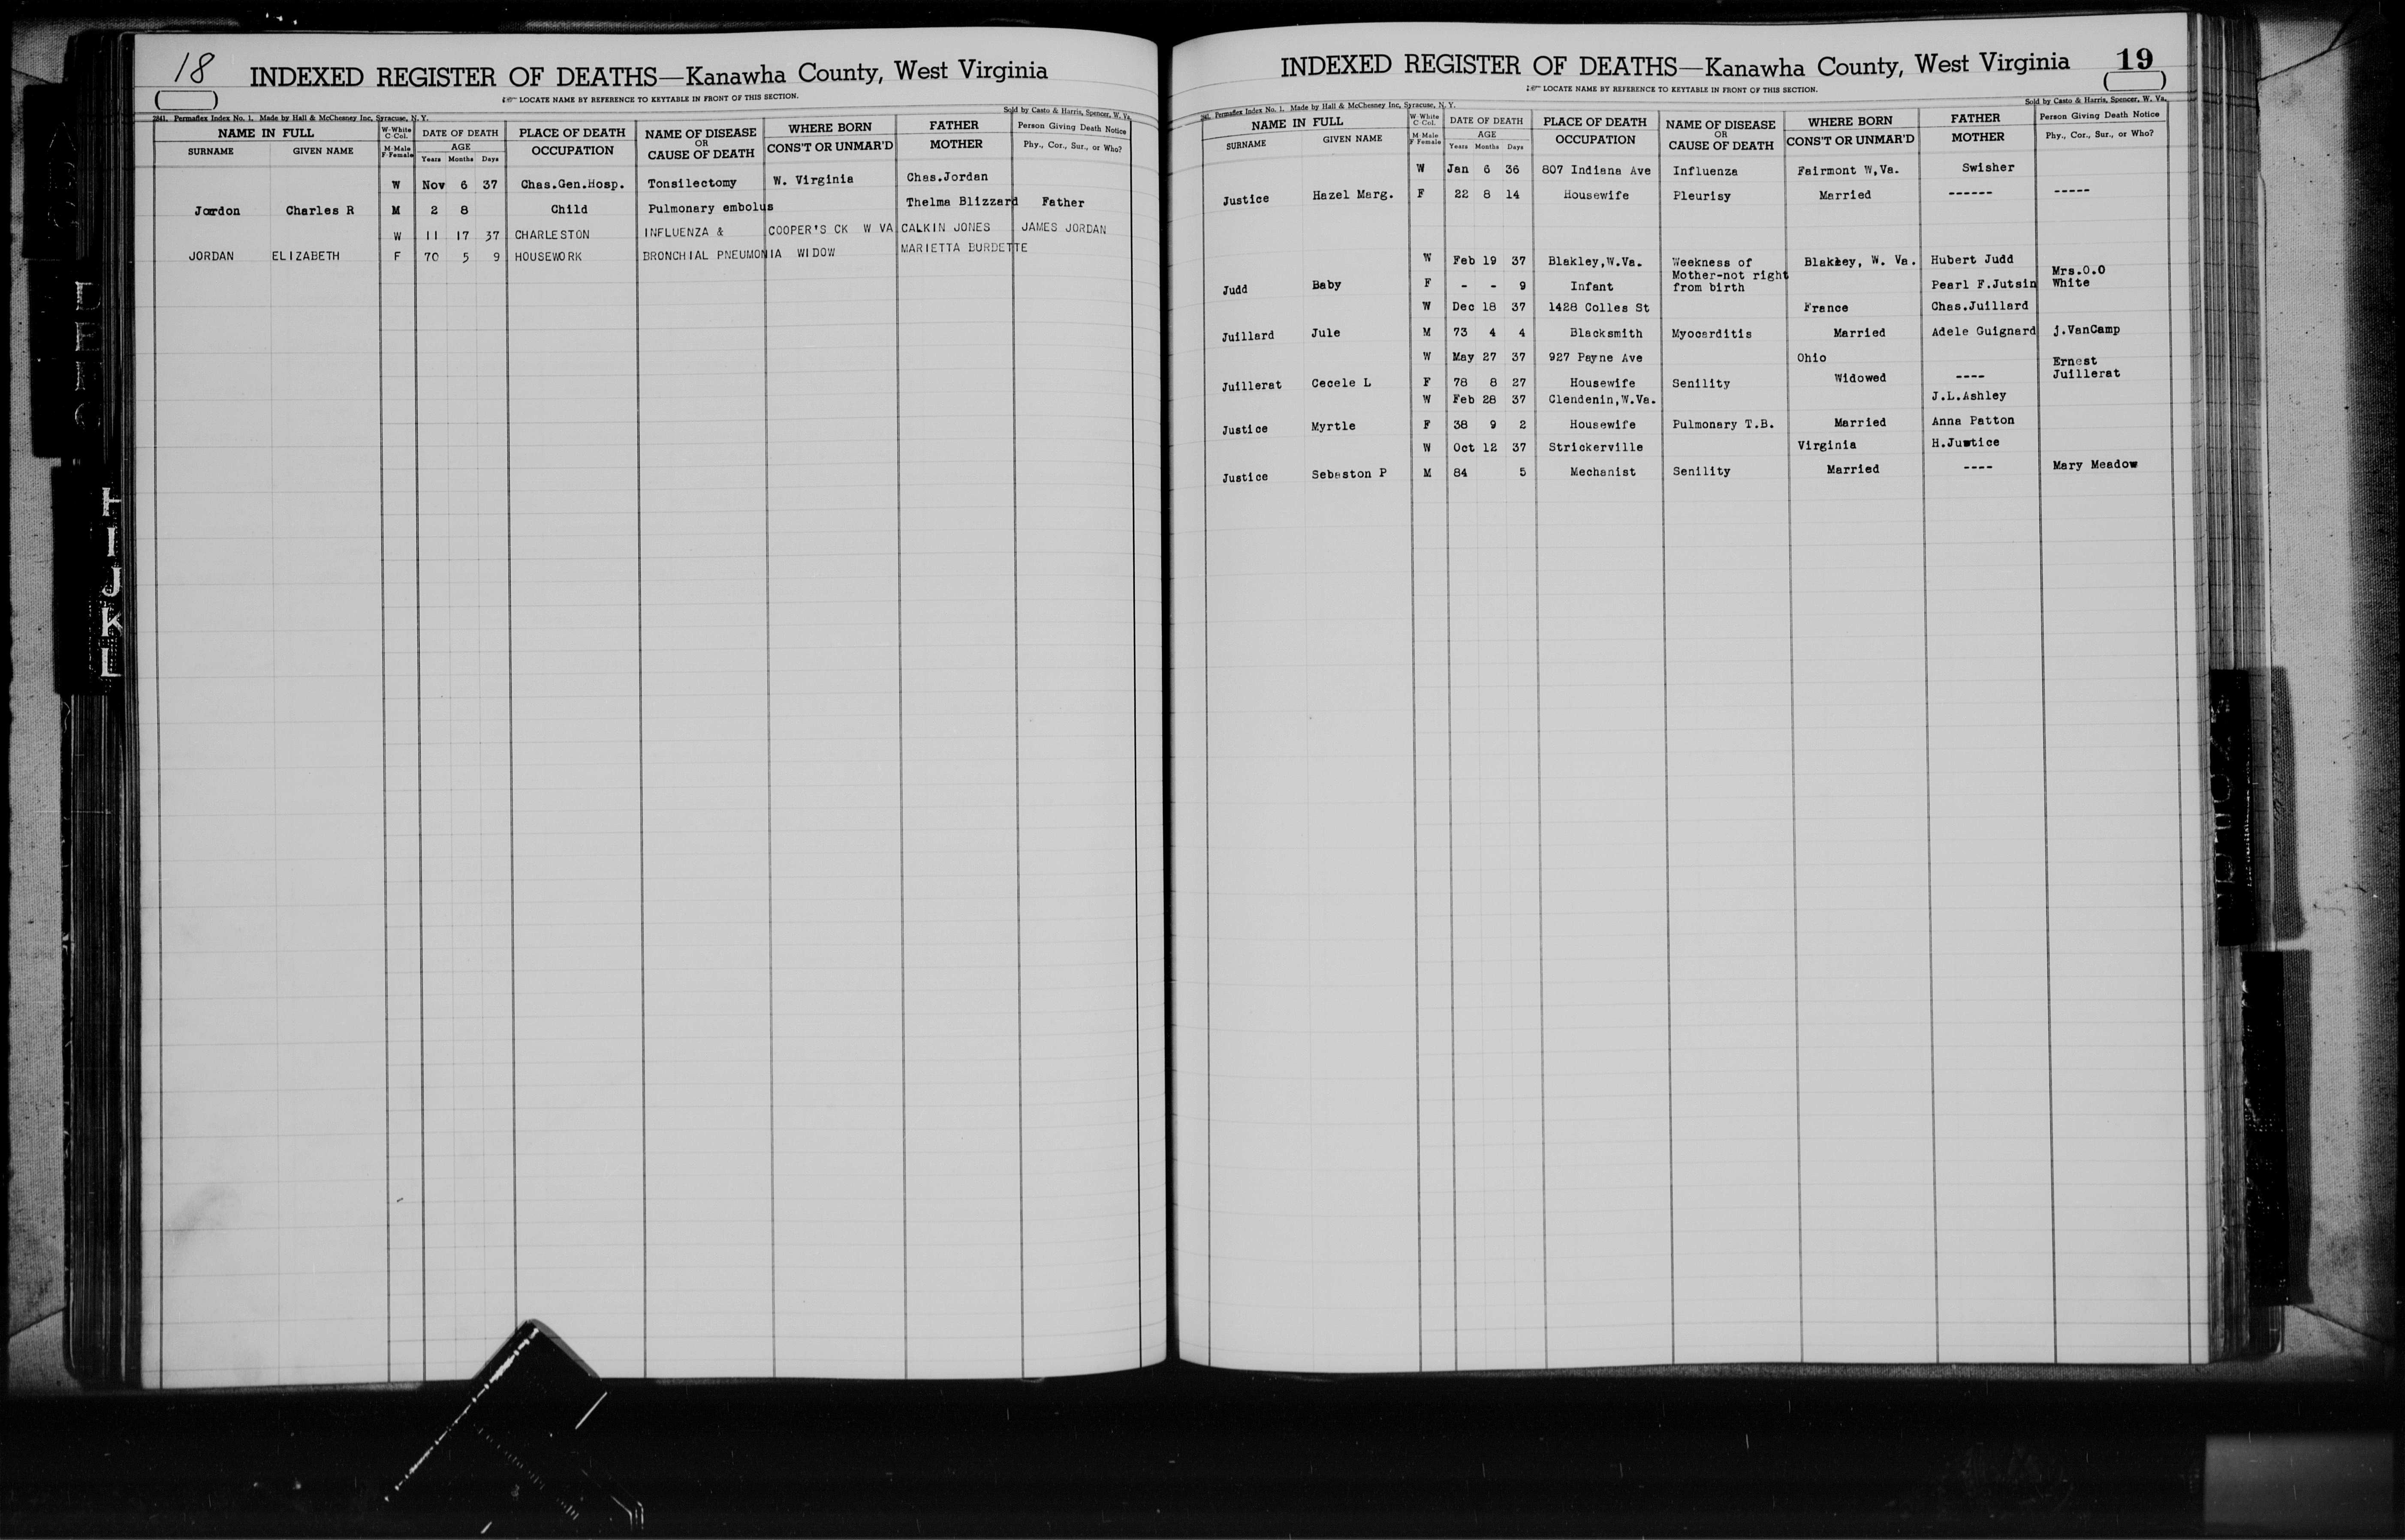 18
INDEXED REGISTER OF DEATHS—Kanawha County, West Virginia
LOCATE NAME BY REFERENCE TO KEYTABLE IN FRONT OF THIS SECTION.
2841. Permaflex Index No. 1. Made by Hall & McChesney Inc, Syracuse, N. Y. Sold by Casto & Harris, Spencer, W. Va.
NAME IN FULL W-White C Col. DATE OF DEATH PLACE OF DEATH NAME OF DISEASE WHERE BORN FATHER Person Giving Death Notice
SURNAME GIVEN NAME M-Male F-Female AGE Years Months Days OCCUPATION OR CAUSE OF DEATH CONS'T OR UNMAR'D MOTHER Phy., Cor., Sur., or Who?
W Nov 6 37 Chas.Gen.Hosp. Tonsilectomy W. Virginia Chas.Jordan
Jordon Charles R M 2 8 Child Pulmonary embolus Thelma Blizzard Father
W 11 17 37 CHARLESTON INFLUENZA & COOPER'S CK W VA CALKIN JONES JAMES JORDAN
JORDAN ELIZABETH F 70 5 9 HOUSEWORK BRONCHIAL PNEUMONIA WIDOW MARIETTA BURDETTE
H
I
J
K
L
INDEXED REGISTER OF DEATHS—Kanawha County, West Virginia 19
LOCATE NAME BY REFERENCE TO KEYTABLE IN FRONT OF THIS SECTION.
2841. Permaflex Index No. 1. Made by Hall & McChesney Inc, Syracuse, N. Y. Sold by Casto & Harris, Spencer, W. Va.
NAME IN FULL W-White C Col. DATE OF DEATH PLACE OF DEATH NAME OF DISEASE WHERE BORN FATHER Person Giving Death Notice
SURNAME GIVEN NAME M-Male F Female AGE Years Months Days OCCUPATION OR CAUSE OF DEATH CONS'T OR UNMAR'D MOTHER Phy., Cor., Sur., or Who?
W Jan 6 36 807 Indiana Ave Influenza Fairmont W,Va. Swisher
Justice Hazel Marg. F 22 8 14 Housewife Pleurisy Married ------ -----
W Feb 19 37 Blakley,W.Va. Weekness of Blakley, W. Va. Hubert Judd
Mother-not right Mrs.O.O
Judd Baby F - - 9 Infant from birth Pearl F.Jutsin White
W Dec 18 37 1428 Colles St France Chas.Juillard
Juillard Jule M 73 4 4 Blacksmith Myocarditis Married Adele Guignard j.VanCamp
W May 27 37 927 Payne Ave Ohio Ernest
Juillerat Cecele L F 78 8 27 Housewife Senility Widowed ---- Juillerat
W Feb 28 37 Clendenin,W.Va. J.L.Ashley
Justice Myrtle F 38 9 2 Housewife Pulmonary T.B. Married Anna Patton
W Oct 12 37 Strickerville Virginia H.Justice
Justice Sebaston P M 84 5 Mechanist Senility Married ---- Mary Meadow